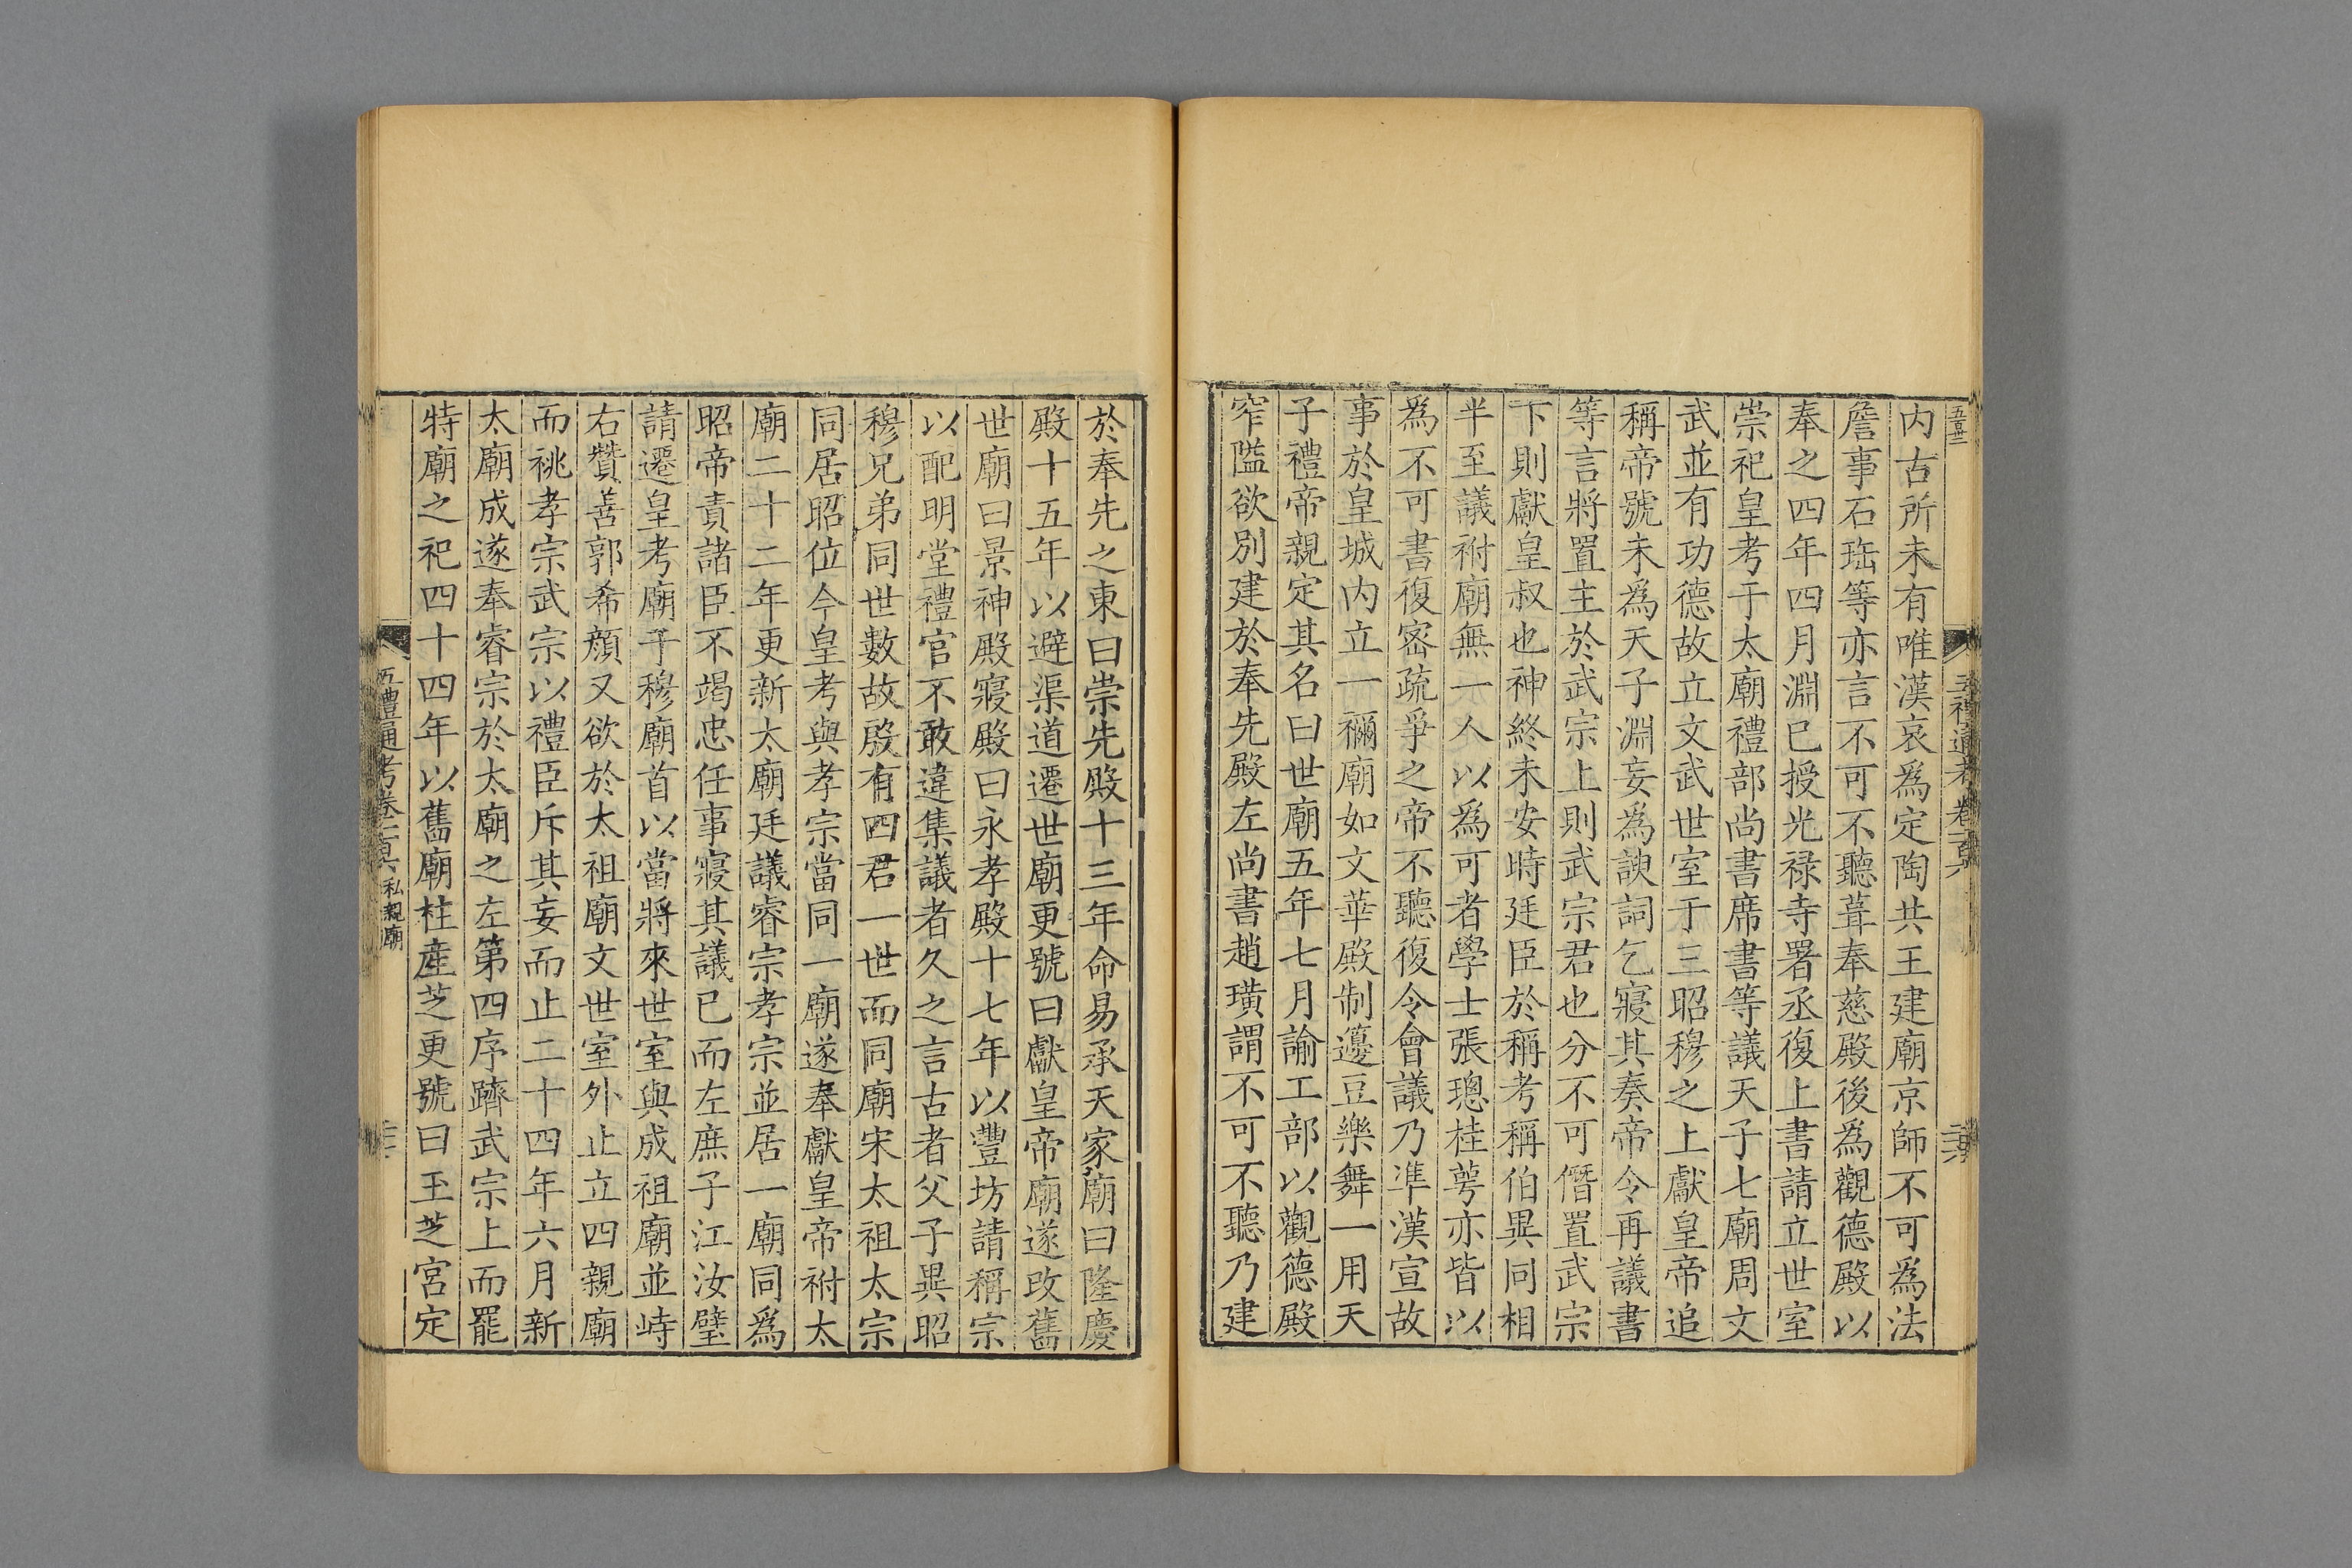 内古所未有唯漢哀為定陶共王建廟京師不可為法
詹事石珤等亦言不可不聽葺奉慈殿後為觀德殿以
奉之四年四月淵已授光禄寺署丞復上書請立世室
崇祀皇考于太廟禮部尚書席書等議天子七廟周文
武並有功德故立文武世室于三昭穆之上獻皇帝追
稱帝號未為天子淵妄為諛詞乞寢其奏帝令再議書
等言將置主於武宗上則武宗君也分不可僭置武宗
下則獻皇叔也神終未安時廷臣於稱考稱伯異同相
半至議祔廟無一人以為可者學士張璁桂萼亦皆以
為不可書復密疏爭之帝不聽復令會議乃準漢宣故
事於皇城内立一禰廟如文華殿制籩豆樂舞一用天
子禮帝親定其名曰世廟五年七月諭工部以觀德殿
窄隘欲別建於奉先殿左尚書趙璜謂不可不聽乃建
於奉先之東曰崇先殿十三年命易承天家廟曰隆慶
殿十五年以避渠道遷世廟更號曰獻皇帝廟遂改舊
世廟曰景神殿寢殿曰永孝殿十七年以豐坊請稱宗
以配明堂禮官不敢違集議者久之言古者父子異昭
穆兄弟同世數故殷有四君一世而同廟宋太祖太宗
同居昭位今皇考與孝宗當同一廟遂奉獻皇帝祔太
廟二十二年更新太廟廷議睿宗孝宗並居一廟同為
昭帝責諸臣不竭忠任事寢其議已而左庶子江汝璧
請遷皇考廟于穆廟首以當將來世室與成祖廟並峙
右贊善郭希顔又欲於太祖廟文世室外止立四親廟
而祧孝宗武宗以禮臣斥其妄而止二十四年六月新
太廟成遂奉睿宗於太廟之左第四序躋武宗上而罷
特廟之祀四十四年以舊廟柱産芝更號曰玉芝宮定
五禮通考卷一百六 私親廟